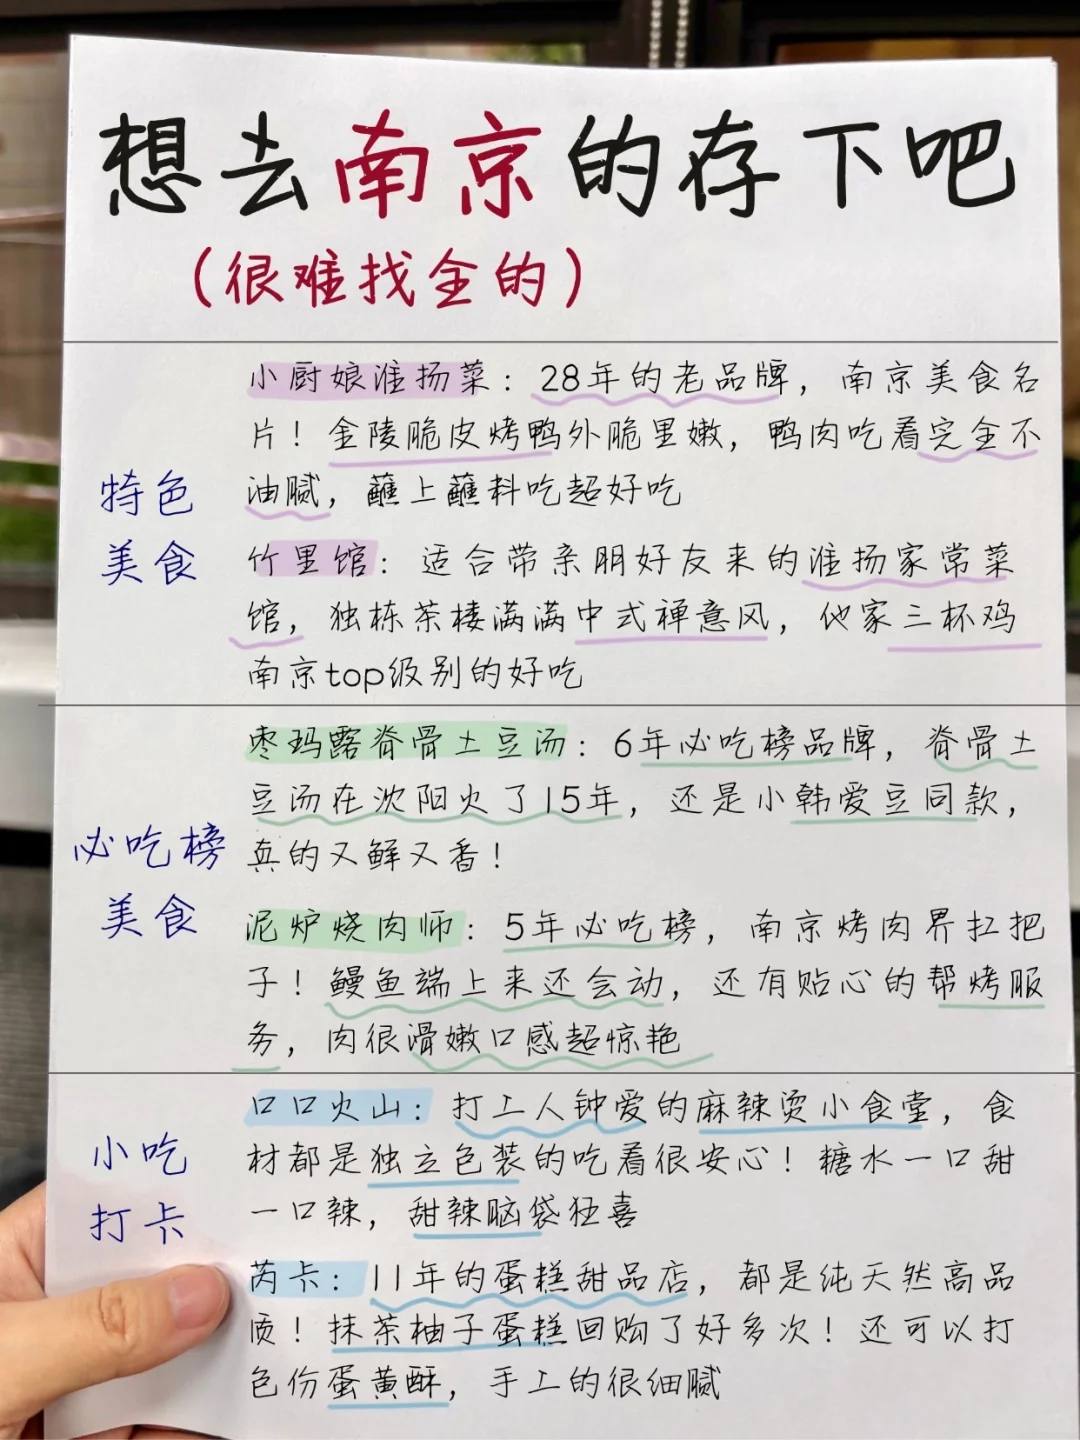 想去南京的存下吧
(很难找全的)
特色
美食
小厨娘淮扬菜：28年的老品牌，南京美食名
片！金陵脆皮烤鸭外脆里嫩，鸭肉吃着完全不
油腻，蘸上蘸料吃超好吃
竹里馆：适合带亲朋好友来的淮扬家常菜
馆，独栋茶楼满满中式禅意风，他家三杯鸡
南京top级别的好吃
必吃榜
美食
枣玛露脊骨土豆汤：6年必吃榜品牌，脊骨土
豆汤在沈阳火了15年，还是小韩爱豆同款，
真的又鲜又香！
泥炉烧肉师：5年必吃榜，南京烤肉界扛把
子！鳗鱼端上来还会动，还有贴心的帮烤服
务，肉很滑嫩口感超惊艳
小吃
打卡
口口火山：打工人钟爱的麻辣烫小食堂，食
材都是独立包装的吃着很安心！糖水一口甜
一口辣，甜辣脑袋狂喜
芮卡：11年的蛋糕甜品店，都是纯天然高品
质！抹茶柚子蛋糕回购了好多次！还可以打
包份蛋黄酥，手工的很细腻